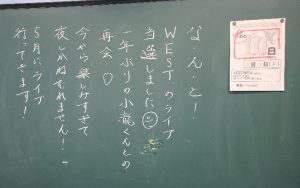 な、ん、と！
WESTのライブ
当選しました
一年ぶりの小瀧くんとの
再会♡
今から楽しみすぎて
夜しかねむれません！
5月にライブ
行ってきます！
10
日